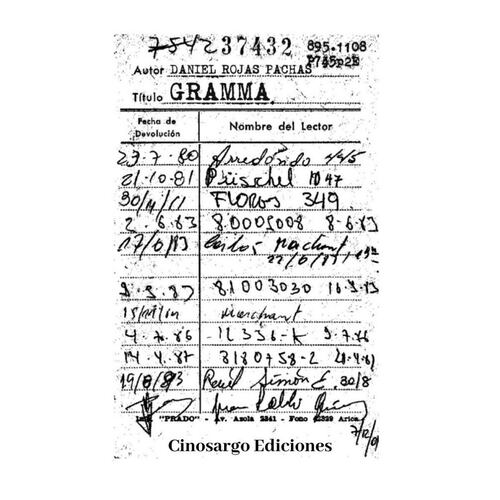 37432 895.1108
P745p2B
Autor DANIEL ROJAS PACHAS
Título GRAMMA.
Fecha de Devolución Nombre del Lector
23.7.80 Arredondo 445
21.10.81 1047
FLORES 349
2.6.83 8.0005008 8-6-83
17/0/83 Carlos Marchant
9.9.83 81003030 16.9.83
Marchant
4.7.86 -12336-K 9-7-86
14.4.87 3180758-2
19/8/83 Raúl Simón E. 30/8
Juan Pablo
"PRADO" - Av. Azola 2341 - Fono 42339 Arica
Cinosargo Ediciones